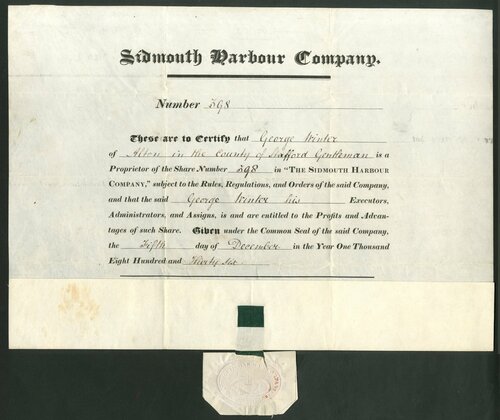 Sidmouth Harbour Company.
Number 398
These are to Certify that George Winter
of Alton in the County of Stafford Gentleman is a
Proprietor of the Share Number 398 in "THE SIDMOUTH HARBOUR
COMPANY," subject to the Rules, Regulations, and Orders of the said Company,
and that the said George Winter his Executors,
Administrators, and Assigns, is and are entitled to the Profits and Advan-
tages of such Share. Given under the Common Seal of the said Company,
the Fifth day of December in the Year One Thousand
Eight Hundred and Thirty Six